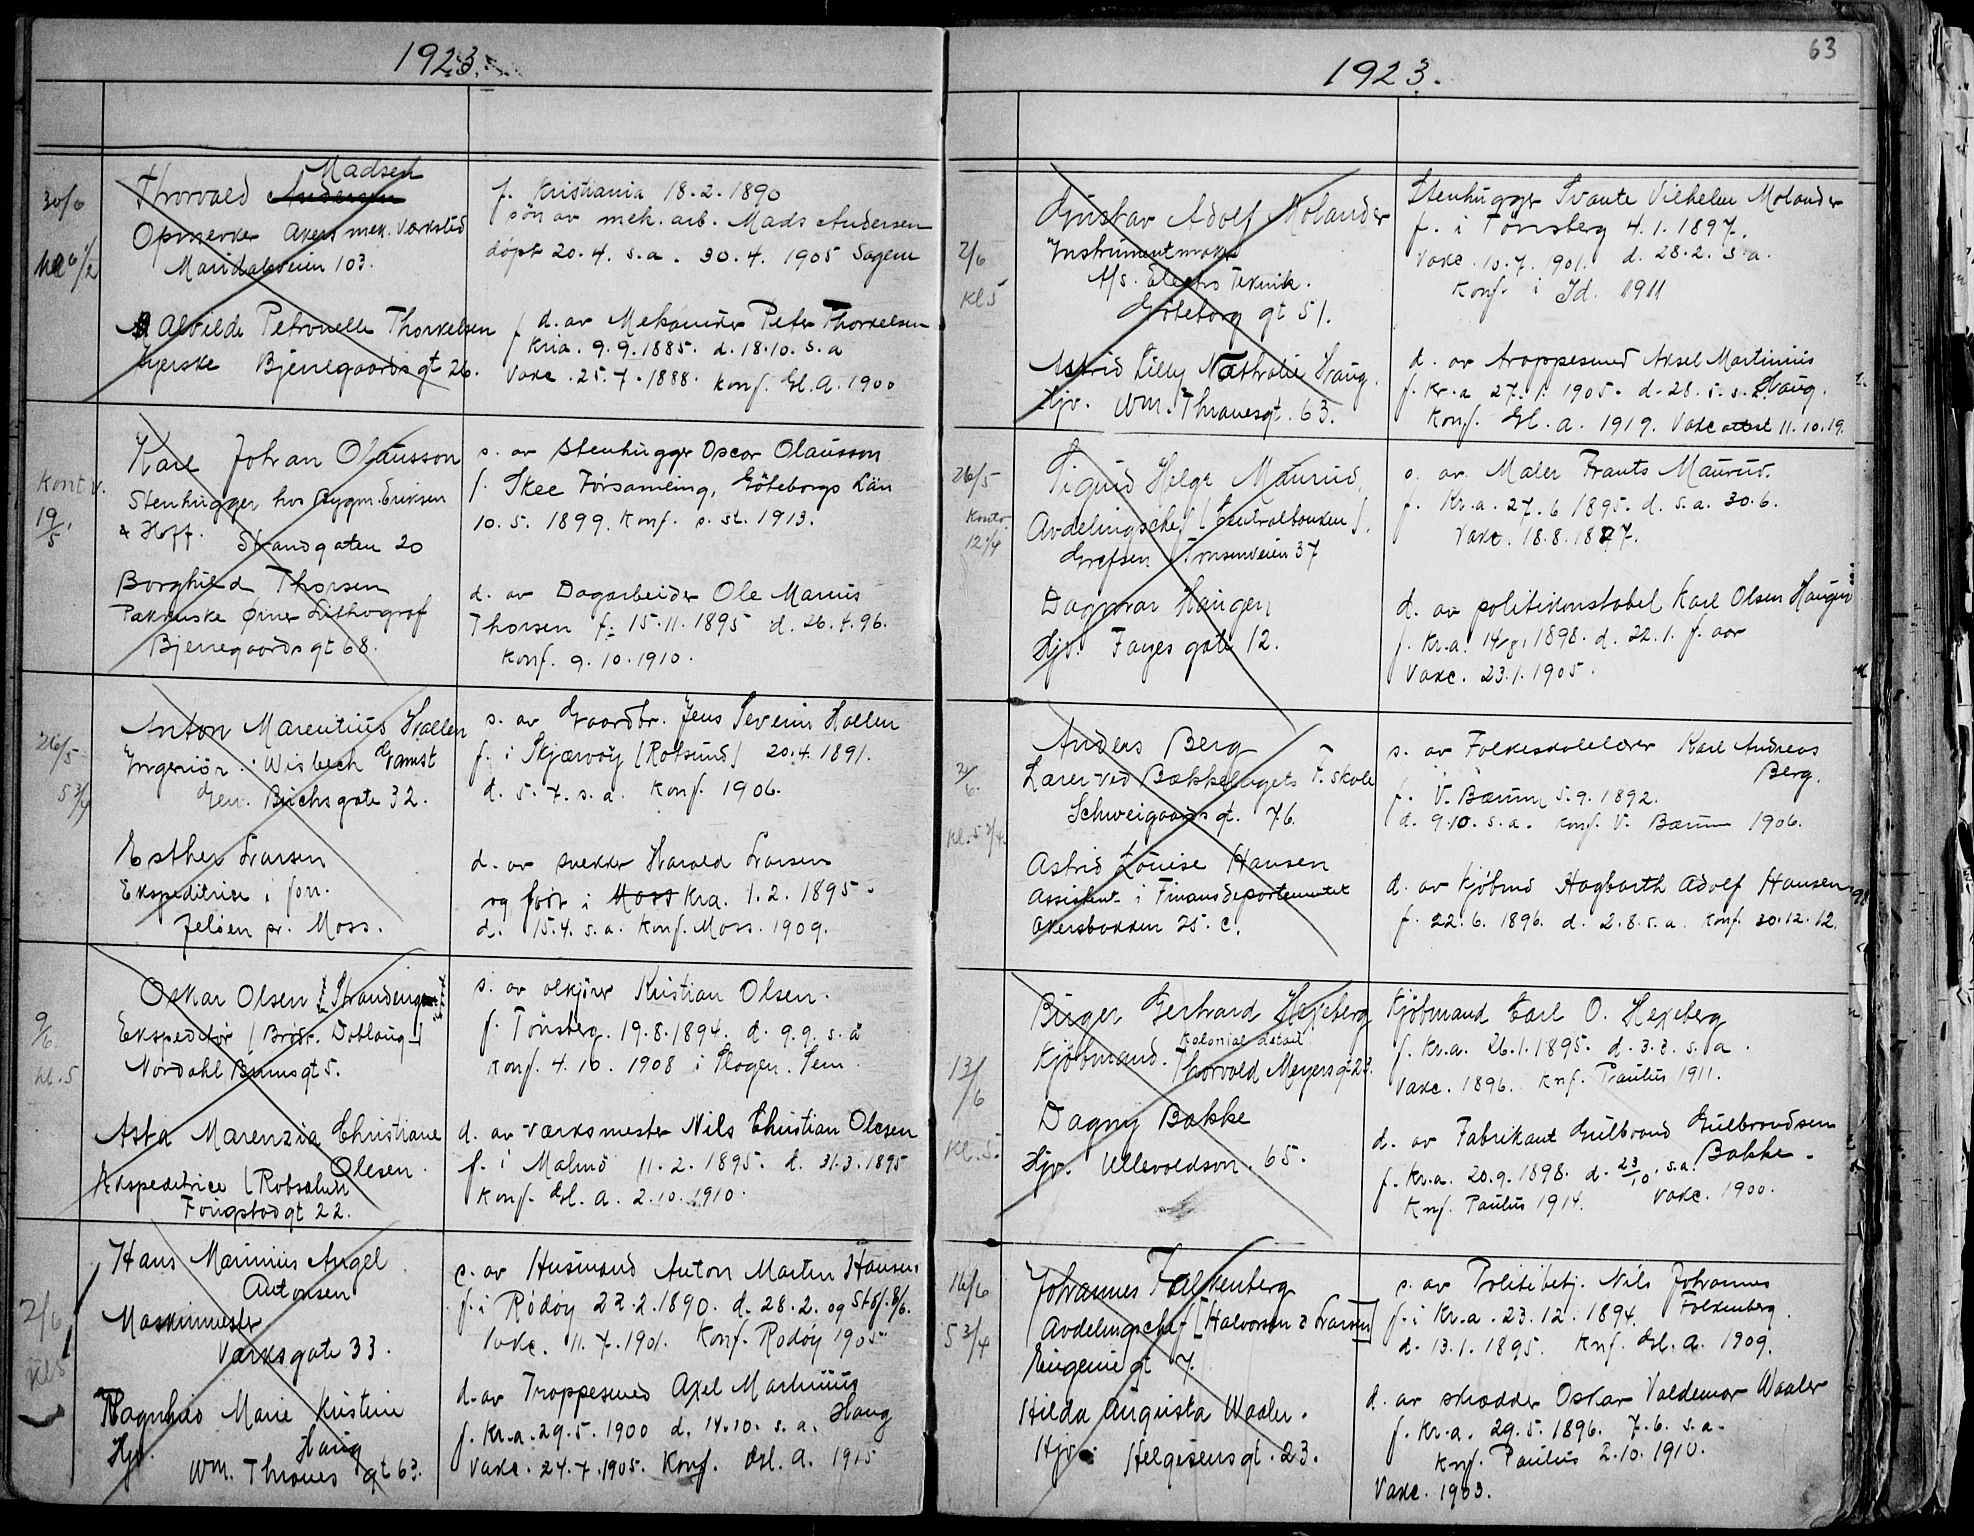 1923.
30/6
Madsen
Thorvald Andersen
Opmerker Akers mek. Værksted
Maridalsveien 103.
f. Kristiania 18.2.1890
søn av mek. arb. Mads Andersen
døpt 20.4. s.a. 30.4. 1905 Sagene
Alvilde Petronelle Thorkelsen
syerske Bjerregaards gt 26.
d. av Mekaniker Peter Thorkelsen
f. Kria. 9.9.1885. d. 18.10. s.a
Vakc. 25.7.1888. Konf. Gl. A. 1900
Kont v.
19/5
Karl Johan Olausson
Stenhugger hos Bygm. Eriksen
& Hoff. Strandgaten 20
s. av Stenhugger Oscar Olausson
f. Skee Forsamling, Göteborgs Län
10.5.1899. Konf. s. st. 1913.
Borghild Thorsen
Pakkerske Lithograf
Bjerregaards gt 68.
d. av Dagarbeider Ole Marius
Thorsen f. 15.11.1895 d. 26.4.96.
Konf. 9.10.1910.
26/5
5 3/4
Anton Marentius Hallen
Ingeniør Wisbech Gamst
Gen. Birchsgate 32.
s. av Gaardbr. Jens Severin Hallen
f. i Skjærvøy [Rotsund] 20.4.1891.
d. 5.7. s.a. Konf. 1906.
Esther Larsen
Ekspeditrice i forr.
Jeløen pr. Moss.
d. av snekker Harald Larsen
og født i Moss Kra. 1.2.1895.
d. 15.4. s.a. Konf. Moss. 1909.
9/6.
kl. 5
Oskar Olsen
Ekspeditør [Brødr. Dobloug]
Nordahl Brunsgt 5.
s. av ølkjører Kristian Olsen.
f. Tønsberg. 19.8.1894. d. 9.9. s. å
Konf. 4.10 1908 i Skoger. Sem.
Asta Marenzia Christiane
Olesen.
Ekspeditrice
Fougstadgt 22.
d. av værksmester Nils Christian Olesen
f. i Malmö 11.2.1895. d. 31.3.1895
Konf. Gl. A. 2.10.1910.
2/6
kl 5
Hans Marinius Angel
Antonsen
Maskinmester
Værksgate 33.
s. av Husmand Anton Martin Hansen
f. i Rødøy 22.2.1890. d. 28.2. og st.
Vakc. 11.7.1901. Konf. Rødøy 1905
Ragnhild Marie Kristine
Haug
Hjv. Wm. Thranes gt 63.
d. av Troppesmed Axel Martinius
Haug
f. Kr.a. 29.5.1900 d. 14.10. s.a.
Vakc. 24.7.1905. Konf. Gl. A. 1915
63
1923.
2/6
Kl 5
Gustav Adolf Molander
Instrumentmaker
A/s. Electro Teknik.
Göteborg gt 51.
Stenhugger Svante Vilhelm Molander
f. i Tønsberg 4.1.1897.
Vakc. 10.7.1901. d. 28.2. s.a.
Konf. i Id. 1911
Astrid Lilly Nathalie Haug.
Hjv. Wm. Thranesgt. 63.
d. av troppesmed Aksel Martinius
Haug.
f. Kr.a 27.1.1905. d. 28.5. s.a.
Konf. Gl. A. 1919. Vakc attest 11.10.19.
26/5
Kontr.
12 1/4
Sigurd Helge Maurud.
Avdelingschef [Centralbanken].
Grefsen Tonsenveien 37
s. av Maler Frants Maurud.
f. Kr.a. 27.6 1895. d. s.a. 30.6.
Vakc. 18.8.1897.
Dagmar Haugen
Hjv. Fayes gate 12.
d. av politikonstabel Karl Olsen Haugen
f. Kr.a. 1898. d. 22.1. f. aar
Vakc. 23.1.1905.
2/6.
Kl. 5 3/4.
Anders Berg
Lærer ved Bækkelagets F. skole
Schweigaards gt. 76.
s. av Folkeskolelærer Karl Andreas
Berg.
f. V. Bærum 5.9.1892.
d. 9.10. s.a. Konf. V. Bærum 1906.
Astrid Louise Hansen
Assistent i Finansdepartementet
Akersbakken 25 C.
d. av Kjøbmd Hagbarth Adolf Hansen
f. 22.6.1896. d. 2.8. s.a. Konf. 30.12.12.
13/6
Kl. 5.
Birger Gerhard Hexeberg
Kolonial detail
Kjøbmand. Thorvald Meyers gt 23.
Kjøbmand Carl O. Hexeberg
f. Kr.a. 26.1.1895. d. 3.3. s.a.
Vakc. 1896. Knf. Paulus 1911.
Dagny Bakke
Hjv. Ullevoldsvn. 65.
d. av Fabrikant Gulbrand Gulbrandsen
Bakke.
f. Kr.a. 20.9.1898. d. 23/10. s.a.
Knf. Paulus 1914. Vakc. 1900.
16/6
5 3/4
Johannes Falkenberg
Avdelingschef [Halvorsen & Larsen]
Eugenie gt 7.
s. av Politibetj. Nils Johannes
Falkenberg
f. i Kr.a. 23.12.1894.
d. 13.1.1895. Knf. Gl. A. 1909.
Hilda Augusta Waaler.
Hjv. Helgesens gt. 23.
d. av skrædder Oskar Valdemar Waaler
f. Kr.a. 29.5.1896. 7.6. s.a.
Knf. Paulus 2.10.1910.
Vakc. 1903.